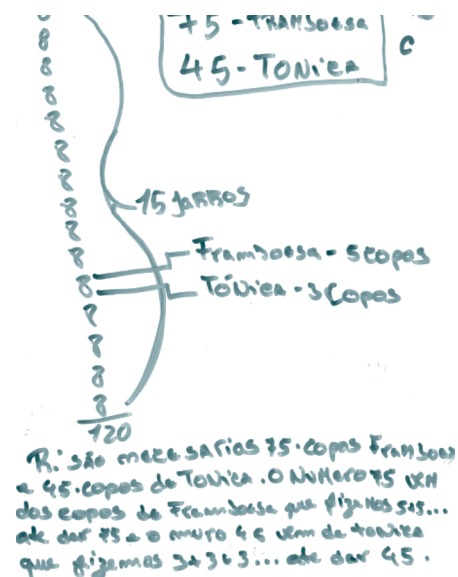 8
8
8
75 - FRAMBOESA
45 - TONICA
8
8
8
8
8
8
15 JARROS
8
Framboesa - 5 copos
8
TÓNICA - 3 Copos
8
8
8
8
120
R: são necesarios 75. copos Framboes
e 45. copos de Tonica. O NuMero 75 VEM
dos copos de Framboesa que fizemos 5+5...
ate dar 75 e o muro 45 vem da tonica
que fizemos 3+3+3... ate dar 45.